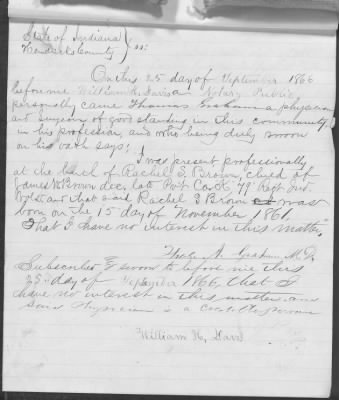 State of Indiana
Hendricks County } ss:
On this 25 day of September 1866
before me William H. Davis a Notary Public
personally came Thomas Graham a physician
and surgeon of good standing in this community,
in his profession, and who being duly sworn
on his oath says:
I was present professionally
at the birth of Rachel S. Brown, child of
James Brown dec, late Co. 79" Regt Ind.
and that said Rachel S Brown was
born on the 15 day of November 1861.
That I have no interest in this matter.
Graham M.D.
Subscribed & sworn to before me this
25 day of September 1866, that I
have no interest in this matter and
said Physician is a person
William H. Davis